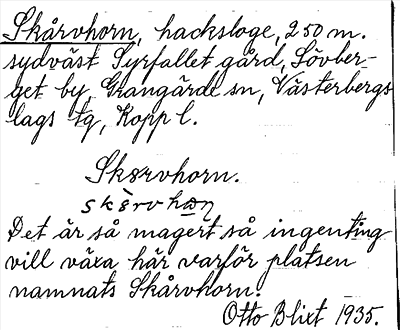 Skårvhorn, hacksloge, 250 m.
sydväst Syrfallet gård, Lövber-
get by, Grangärde sn, Västerbergs
lags tg, Kopp l.
Skørvhorn.
Det är så magert så ingenting
vill växa här varför platsen
namnats Skårvhorn.
Otto Blixt 1935.